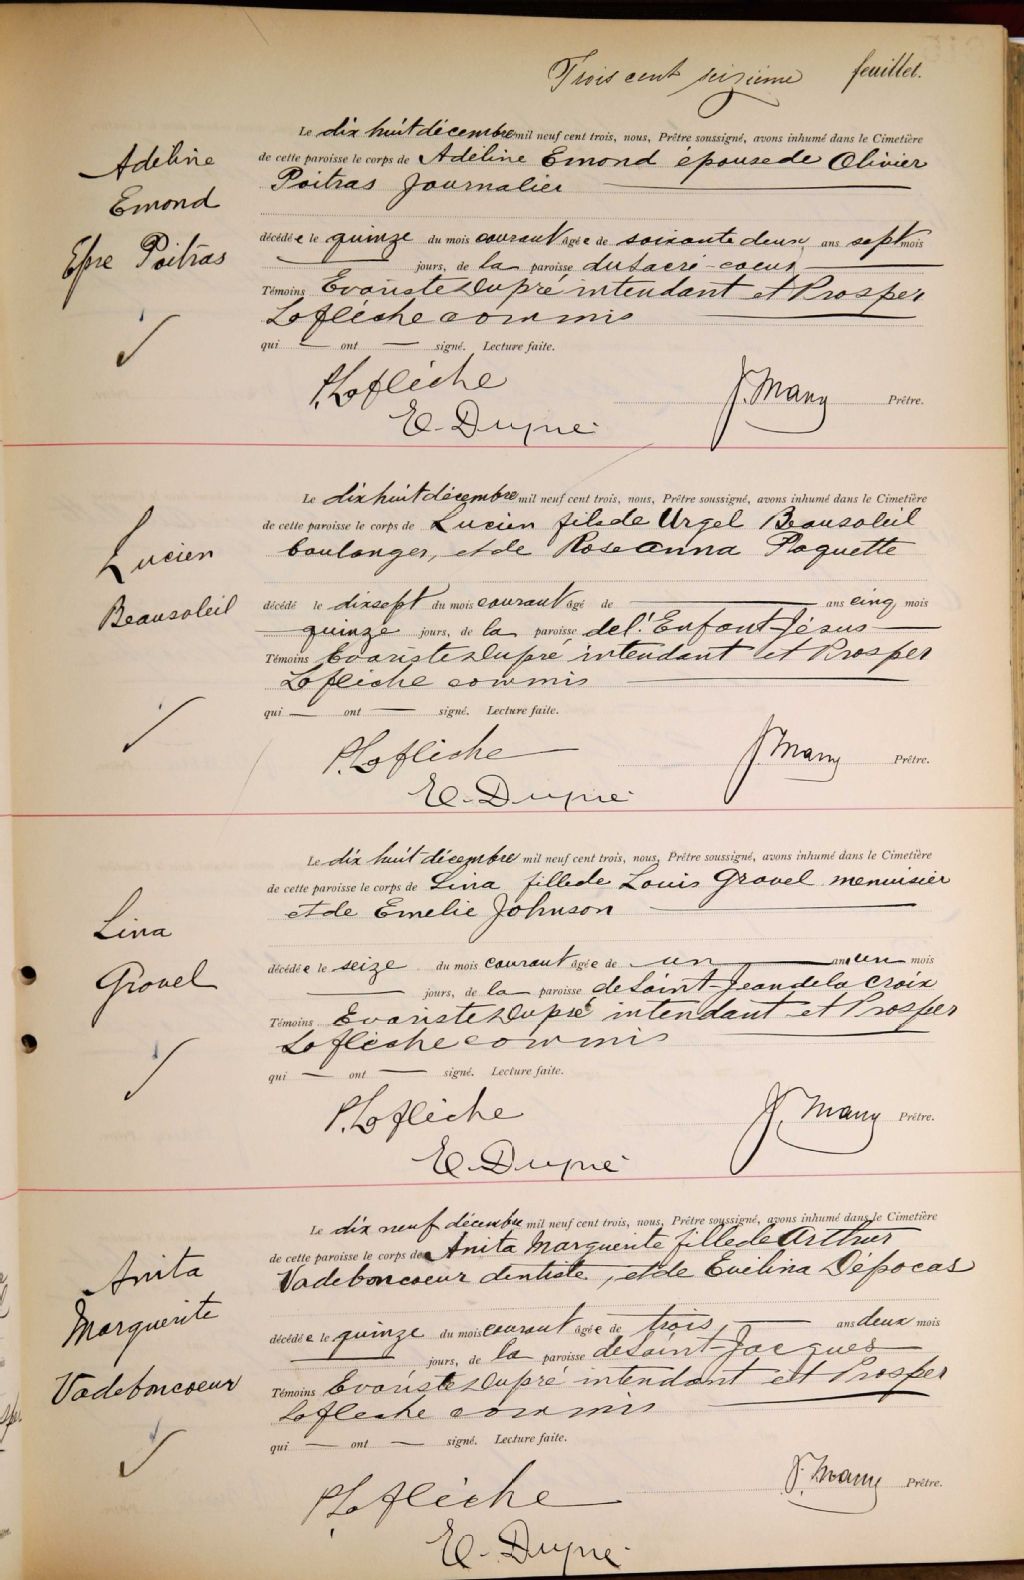 Trois cent seizième feuillet.
Adeline
Emond
Epse Poitras
Le dix huit décembre mil neuf cent trois, nous, Prêtre soussigné, avons inhumé dans le Cimetière
de cette paroisse le corps de Adéline Emond épouse de Olivier
Poitras Journalier
décédée le quinze du mois courant âgée de soixante deux ans sept mois
jours, de la paroisse du Sacré-coeur
Témoins Evariste Dupré intendant et Prosper
Laflèche commis
qui — ont — signé. Lecture faite.
P. Laflèche
J. Many Prêtre.
E. Dupré
Lucien
Beausoleil
Le dix huit décembre mil neuf cent trois, nous, Prêtre soussigné, avons inhumé dans le Cimetière
de cette paroisse le corps de Lucien fils de Urgel Beausoleil
boulanger, et de Rose anna Paquette
décédé le dix sept du mois courant âgé de — ans cinq mois
quinze jours, de la paroisse de l'Enfant-Jésus
Témoins Evariste Dupré intendant et Prosper
Laflèche commis
qui — ont — signé. Lecture faite.
P. Laflèche
J. Many Prêtre.
E. Dupré
Lina
Gravel
Le dix huit décembre mil neuf cent trois, nous, Prêtre soussigné, avons inhumé dans le Cimetière
de cette paroisse le corps de Lina fille de Louis Gravel menuisier
et de Emelie Johnson
décédée le seize du mois courant âgée de un — an un mois
jours, de la paroisse de Saint-Jean de la croix
Témoins Evariste Dupré intendant et Prosper
Laflèche commis
qui — ont — signé. Lecture faite.
P. Laflèche
J. Many Prêtre.
E. Dupré
Anita
Marguerite
Vadeboncoeur
Le dix neuf décembre mil neuf cent trois, nous, Prêtre soussigné, avons inhumé dans le Cimetière
de cette paroisse le corps de Anita Marguerite fille de Arthur
Vadeboncoeur dentiste, et de Evilina Dépocas
décédée le quinze du mois courant âgée de trois — ans deux mois
jours, de la paroisse de Saint-Jacques
Témoins Evariste Dupré intendant et Prosper
Lafleche commis
qui — ont — signé. Lecture faite.
P. Laflèche
J. Many Prêtre.
E. Dupré